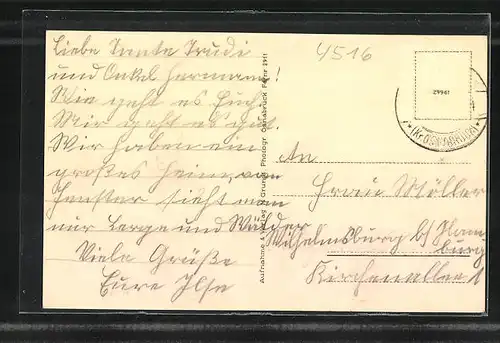 Liebe Tante Trudi
und Onkel Hermann!
Wie geht es Euch
Mir geht es gut.
Wir haben ein
großes Heim, vom
Fenster sieht man
nur Berge und Wälder
Viele Grüße
Eure Ilse
4516
Aufnahme & Verlag Gründel Photogr. Osnabrück Fernr. 2911
24961
(KR OSNABRÜCK)
An
Frau Möller
Wilhelmsburg b/ Ham
burg
Kirchenallee